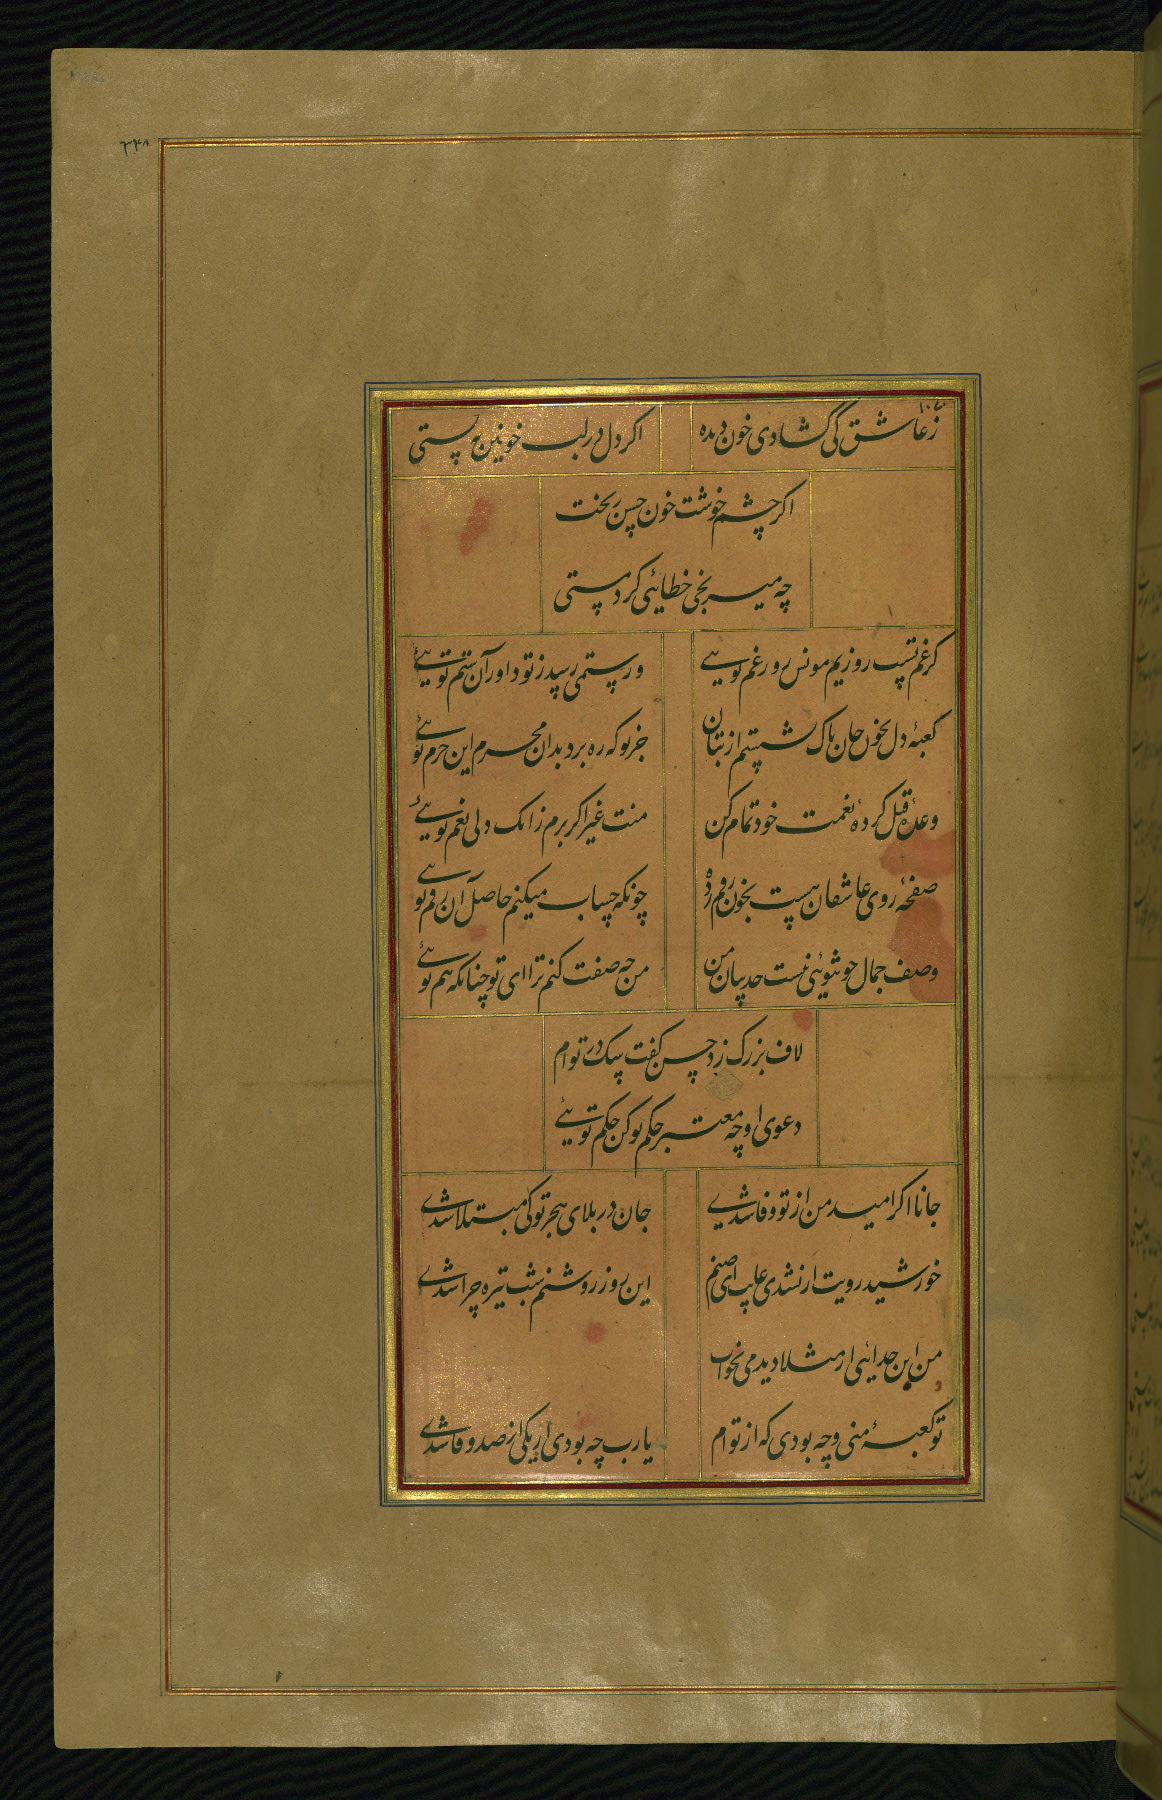 ۲۴۸
ز عاشق کی گشادی خون دیده
اکر دل در لب خونین نبستی
اکر چشم خوشت خون حسن ریخت
چه میرنجی خطایئی کرد مستی
کر غم تست روزیم مونس روز غم تویئے
ور ستمی رسد ز تو داور آن ستم تویئے
کعبهٔ دل بخون جان پاک شستم از بتان
جز تو که ره برد بدان محرم این حرم تویئے
وعدهٔ قتل کردهٔ نعمت خود تمام کن
منت غیر اکر برم زانک ولی نعم تویئے
صفحهٔ روی عاشقان هست بخون رقم زده
چونکه حساب میکنم حاصل آن رقم تویئے
وصف جمال چو تویئی نیست حد بیان من
من چه صفت کنم ترا ای تو چنانکه هم تویئے
لاف بزرک زد حسن کفت سک در توام
دعوی او چه معتبر حکم تو کن حکم تویئے
جانا اکر امید من از تو وفا شدی
جان در بلای هجر تو کی مبتلا شدی
خورشید رویت ار نشدی غایب ای صنم
این روز روشنم شب تیره چرا شدی
من این جدایئی ار مثلا دیدمی بخواب
تو کعبهٔ منی و چه بودی که از توام
یارب چه بودی ار یکی از صد وفا شدی